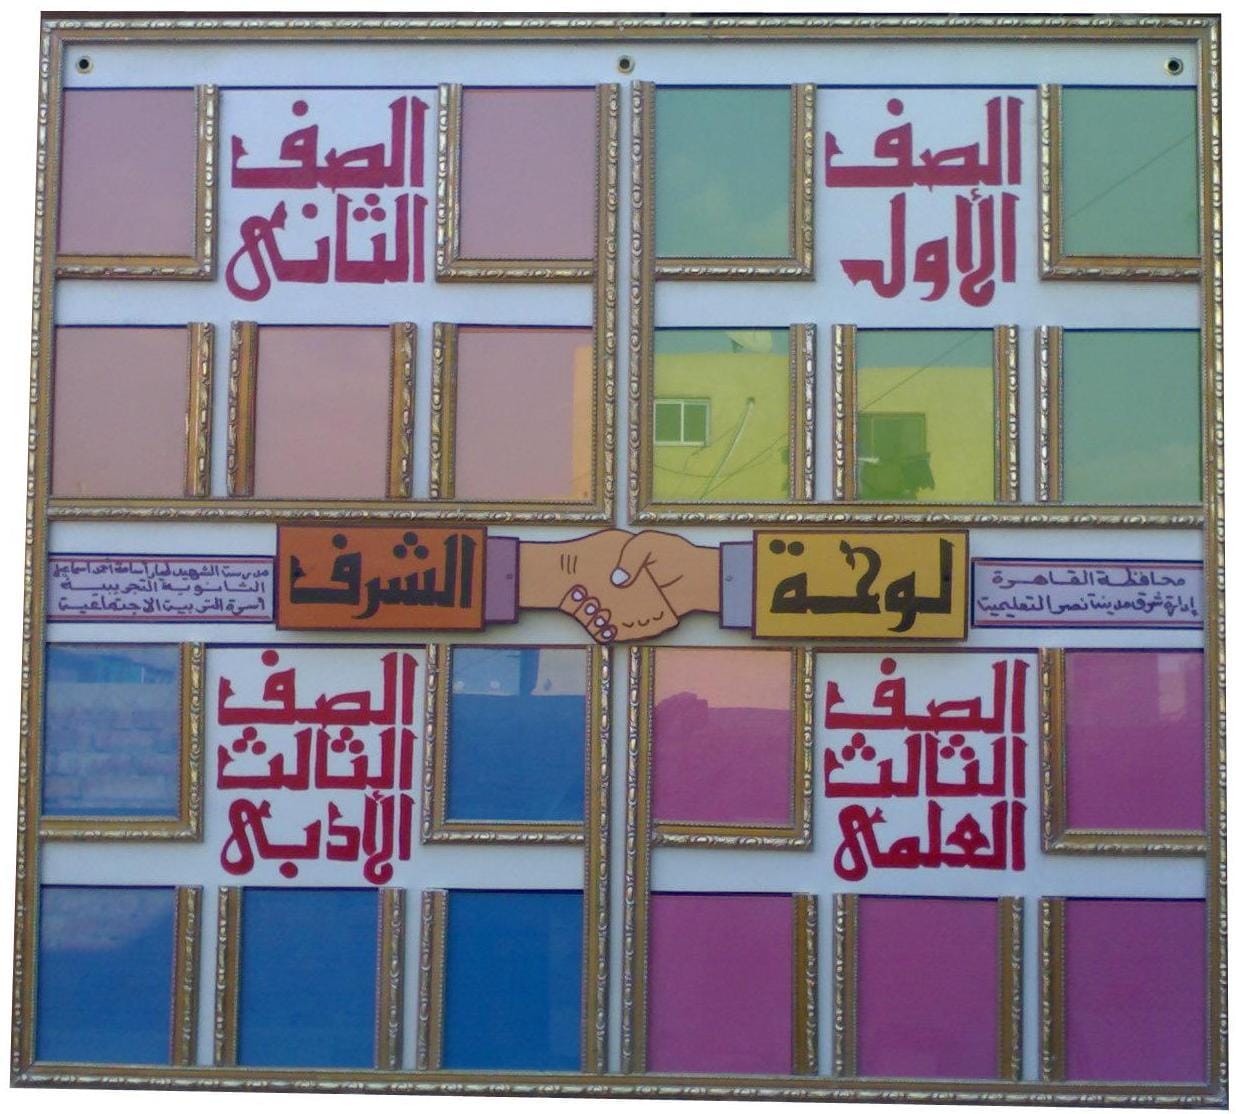 الصف
الأول
الصف
الثانى
لوحة
الشرف
محافظة القاهرة
إدارة شرق مدينة نصر التعليمية
مدرسة الشهيد طيار أسامة أحمد اسماعيل
الثانوية التجريبية
أسرة التربية الاجتماعية
الصف
الثالث
العلمى
الصف
الثالث
الأدبى